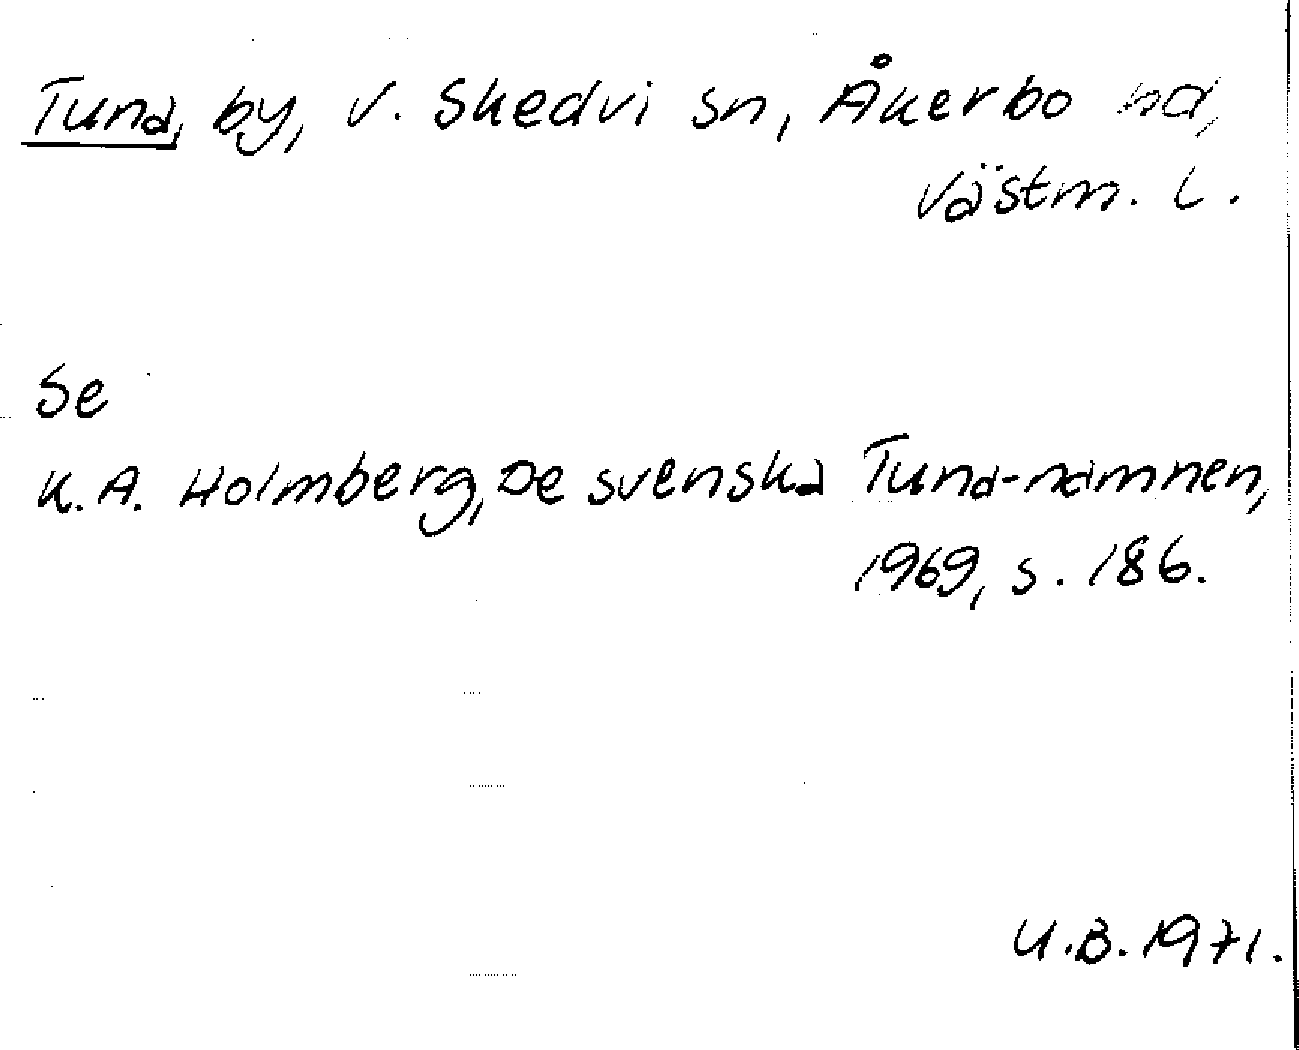 Tuna, by, V. Skedvi sn, Åkerbo hd,
Västm. l.
Se
K.A. Holmberg, De svenska Tuna-namnen,
1969, s. 186.
U.B. 1971.